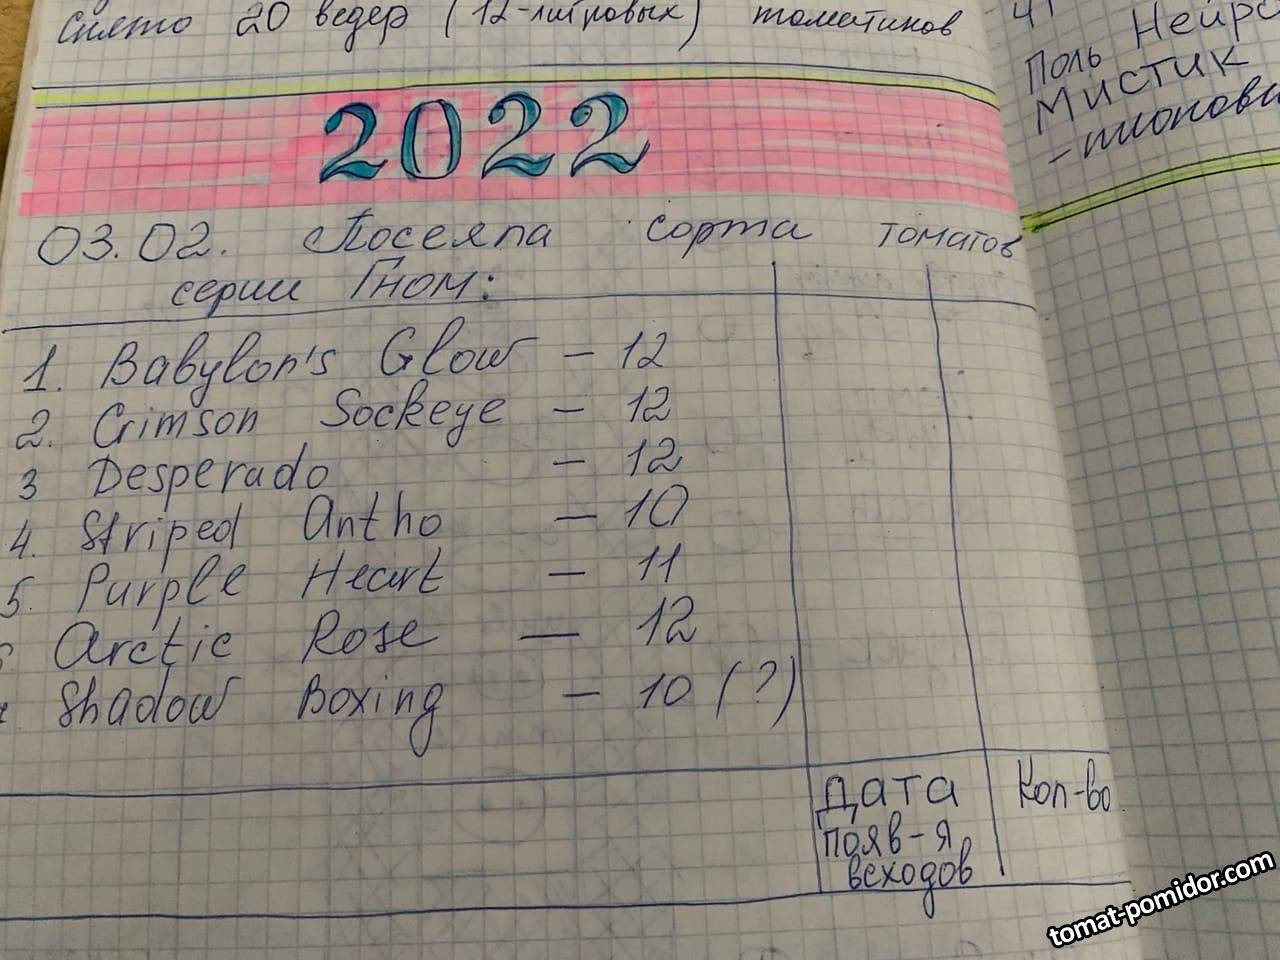 Снято 20 ведер (12-литровых) томатиков
2022
03.02. Посеяла сорта томатов
серии Гном:
1. Babylon's Glow - 12
2. Crimson Sockeye - 12
3 Desperado - 12
4. Striped Antho - 10
5. Purple Heart - 11
Arctic Rose - 12
Shadow Boxing - 10 (?)
Дата Кол-во
появ-я
всходов
Поль Нейро
Мистик
- пионови
tomat-pomidor.com